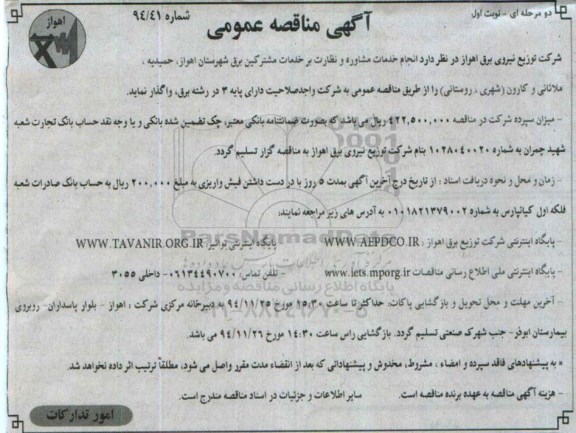 دو مرحله ای - نوبت اول
آگهی مناقصه عمومی
شماره ۹۴/۴۱
اهواز
شرکت توزیع نیروی برق اهواز در نظر دارد انجام خدمات مشاوره و نظارت بر خدمات مشترکین برق شهرستان اهواز، حمیدیه ،
ملاثانی و کارون (شهری ـ روستائی) را از طریق مناقصه عمومی به شرکت واجدصلاحیت دارای پایه ۳ در رشته برق، واگذار نماید.
- میزان سپرده شرکت در مناقصه ۴۲۲,۵۰۰,۰۰۰ ریال می باشد که بصورت ضمانتنامه بانکی معتبر، چک تضمین شده بانکی و یا وجه نقد حساب بانک تجارت شعبه
شهید چمران به شماره ۱۰۲۸۰۴۰۰۲۰ بنام شرکت توزیع نیروی برق اهواز به مناقصه گزار تسلیم گردد.
- زمان و محل و نحوه دریافت اسناد : از تاریخ درج آخرین آگهی بمدت ۵ روز با در دست داشتن فیش واریزی به مبلغ ۲۰۰,۰۰۰ ریال به حساب بانک صادرات شعبه
فلکه اول کیانپارس به شماره ۰۱۰۱۸۲۱۳۷۹۰۰۲ به آدرس های زیر مراجعه نمایند:
- پایگاه اینترنتی شرکت توزیع برق اهواز : WWW.AEPDCO.IR - پایگاه اینترنتی توانیر: WWW.TAVANIR.ORG.IR
- پایگاه اینترنتی ملی اطلاع رسانی مناقصات www.iets.mporg.ir - تلفن تماس: ۰۶۱۳۴۴۹۰۷۰۰ - داخلی ۳۰۵۵
- آخرین مهلت و محل تحویل و بازگشایی پاکات: حداکثر تا ساعت ۱۵:۳۰ مورخ ۹۴/۱۱/۲۵ به دبیرخانه مرکزی شرکت : اهواز - بلوار پاسداران- روبروی
بیمارستان ابوذر- جنب شهرک صنعتی تسلیم گردد. بازگشایی راس ساعت ۱۴:۳۰ مورخ ۹۴/۱۱/۲۶ می باشد.
* به پیشنهادهای فاقد سپرده و امضاء ، مشروط، مخدوش و پیشنهاداتی که بعد از انقضاء مدت مقرر واصل می شود، مطلقاً ترتیب اثر داده نخواهد شد.
- هزینه آگهی مناقصه به عهده برنده مناقصه است. سایر اطلاعات و جزئیات در اسناد مناقصه مندرج است.
امور تدارکات
ParsNamadData